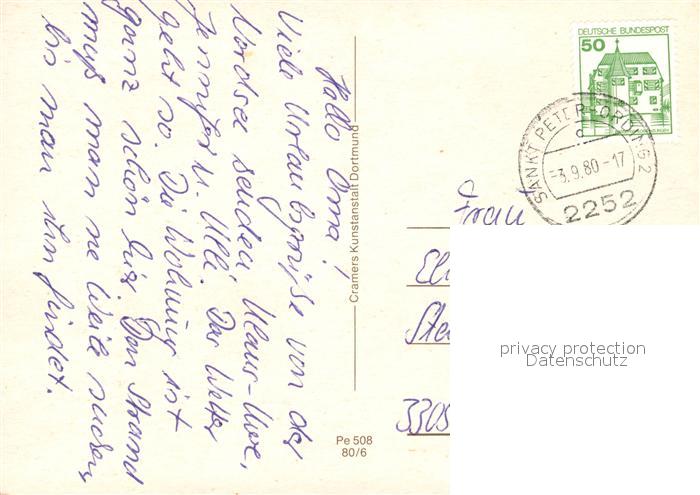 Hallo Oma!
Viele Urlaubsgrüße von der
Nordsee senden Klaus-Uwe,
Jennifer u. Ulli. Das Wetter
geht so. Die Wohnung ist
ganz schön hier. Den Strand
muß man ne Weile suchen,
bis man ihn findet.
Cramers Kunstanstalt Dortmund
Pe 508
80/6
DEUTSCHE BUNDESPOST
50
SANKT PETER-ORDING 2
d
-3.9.80-17
2252
Frau
3305
privacy protection
Datenschutz